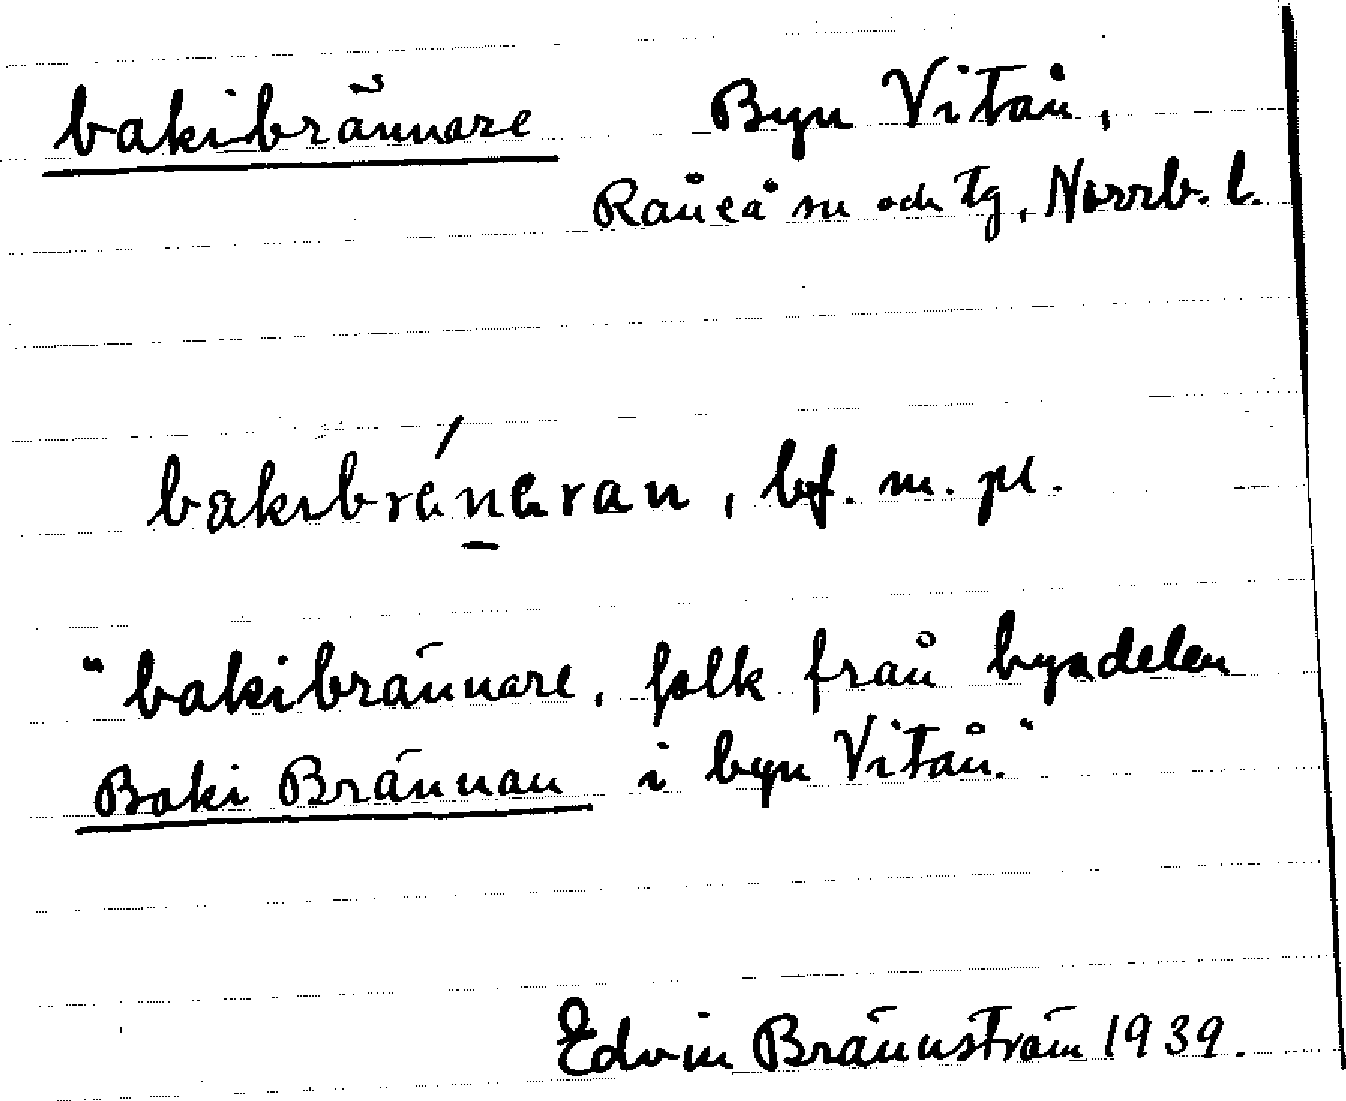 bakibrännare Byn Vitån,
Råneå sn och tg, Norrb. l.
bakibrénaran, bf. m. pl.
"bakibrännare, folk från byadelen
Baki Brännan i byn Vitån."
Edvin Brännström 1939.